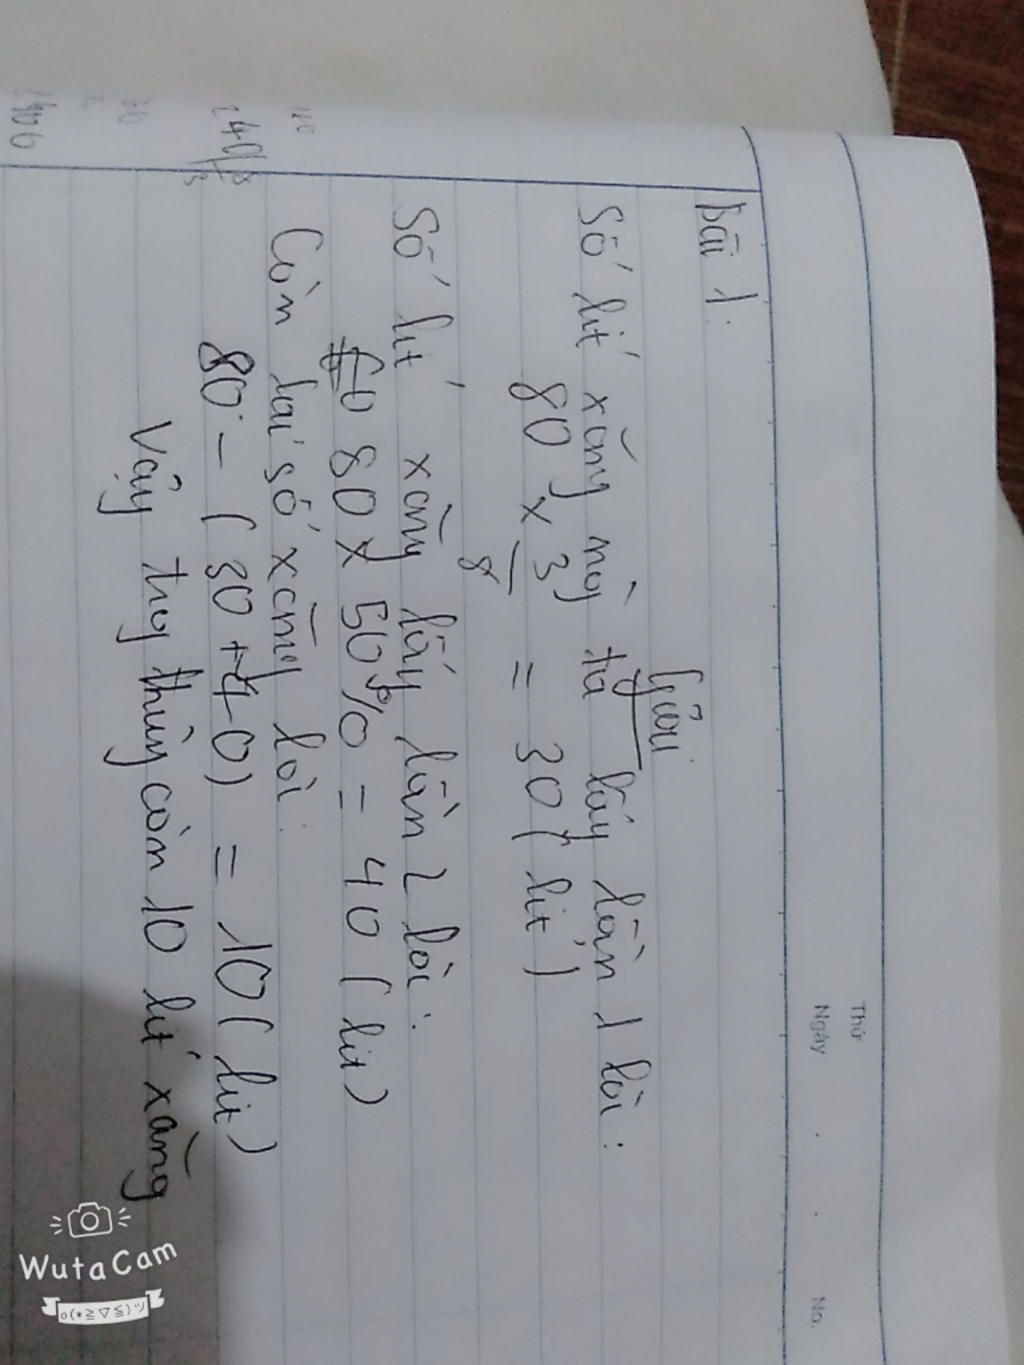 Thứ
Ngày . . No.
Bài 1:
Giải
Số lít xăng mà ta lấy lần 1 là:
80 x 3/8 = 30 (lít)
Số lít xăng lấy lần 2 là:
80 x 50% = 40 (lít)
Còn lại số xăng là:
80 - (30 + 40) = 10 (lít)
Vậy thùng còn 10 lít xăng
240/8
3
WutaCam